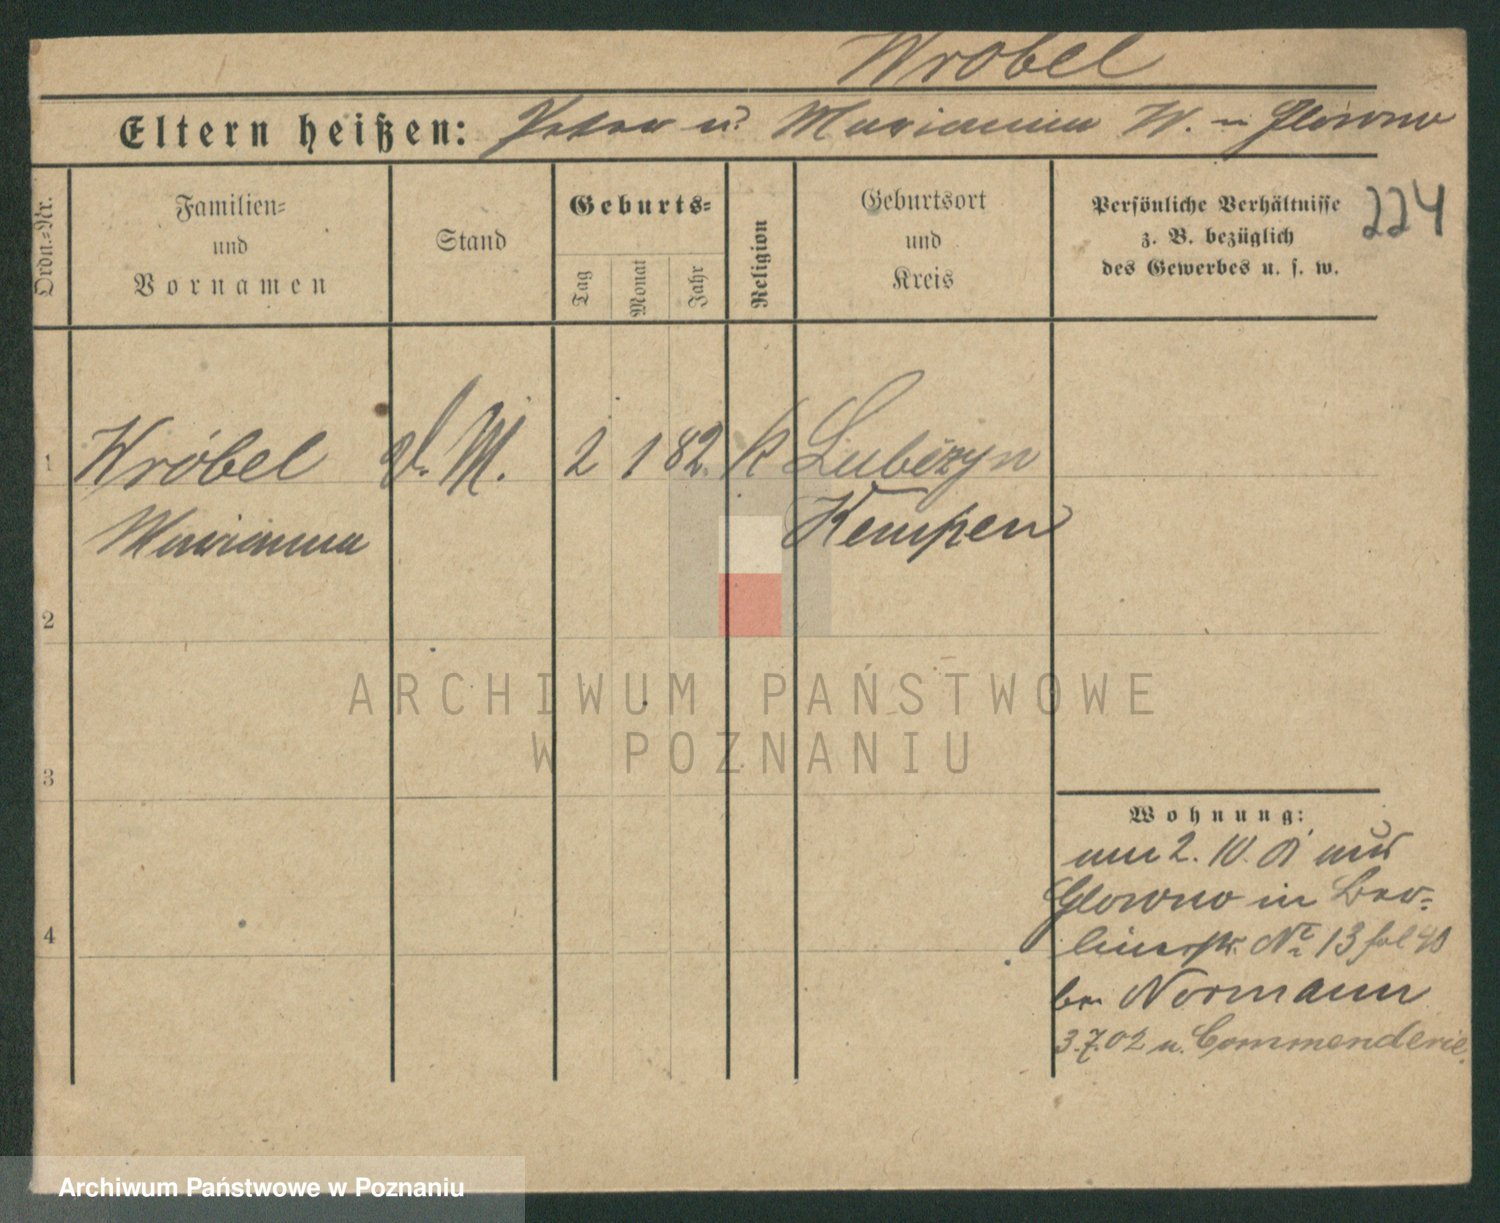 Wrobel
Eltern heißen: Peter u. Marianna W. in Glówno
Ordn.-Nr.
Familien-
und
Vornamen
Stand
Geburts-
Tag
Monat
Jahr
Religion
Geburtsort
und
Kreis
Persönliche Verhältnisse
z. B. bezüglich
des Gewerbes u. s. w.
224
1 Wróbel d. M. 2 1 82. K Lubczyn
Marianna Kempen
2
3
4
Wohnung:
am 2. 10. 01 aus
Glowno in Ber-
linerstr. No 13 fol 40
bei Normann
3.7.02 n. Commenderie.
ARCHIWUM PAŃSTWOWE
W POZNANIU
Archiwum Państwowe w Poznaniu